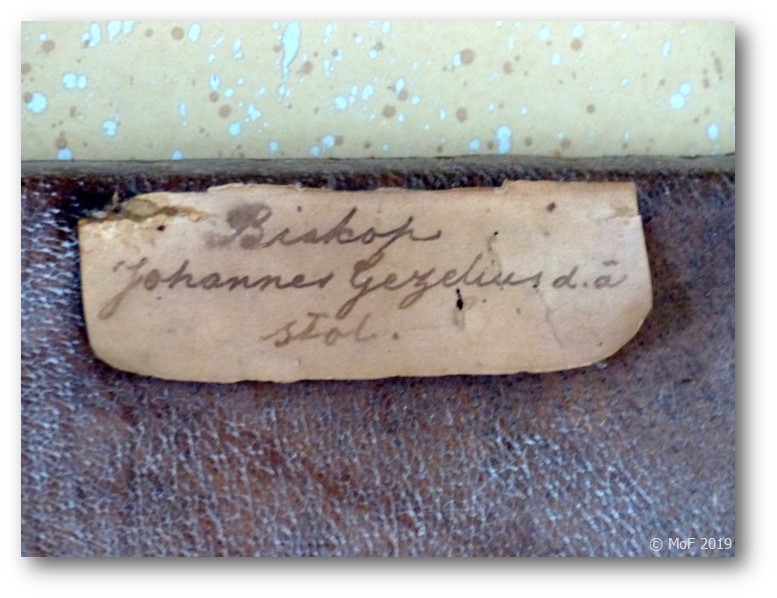 Biskop
Johannes Gezelius d.ä
stol.
© MoF 2019